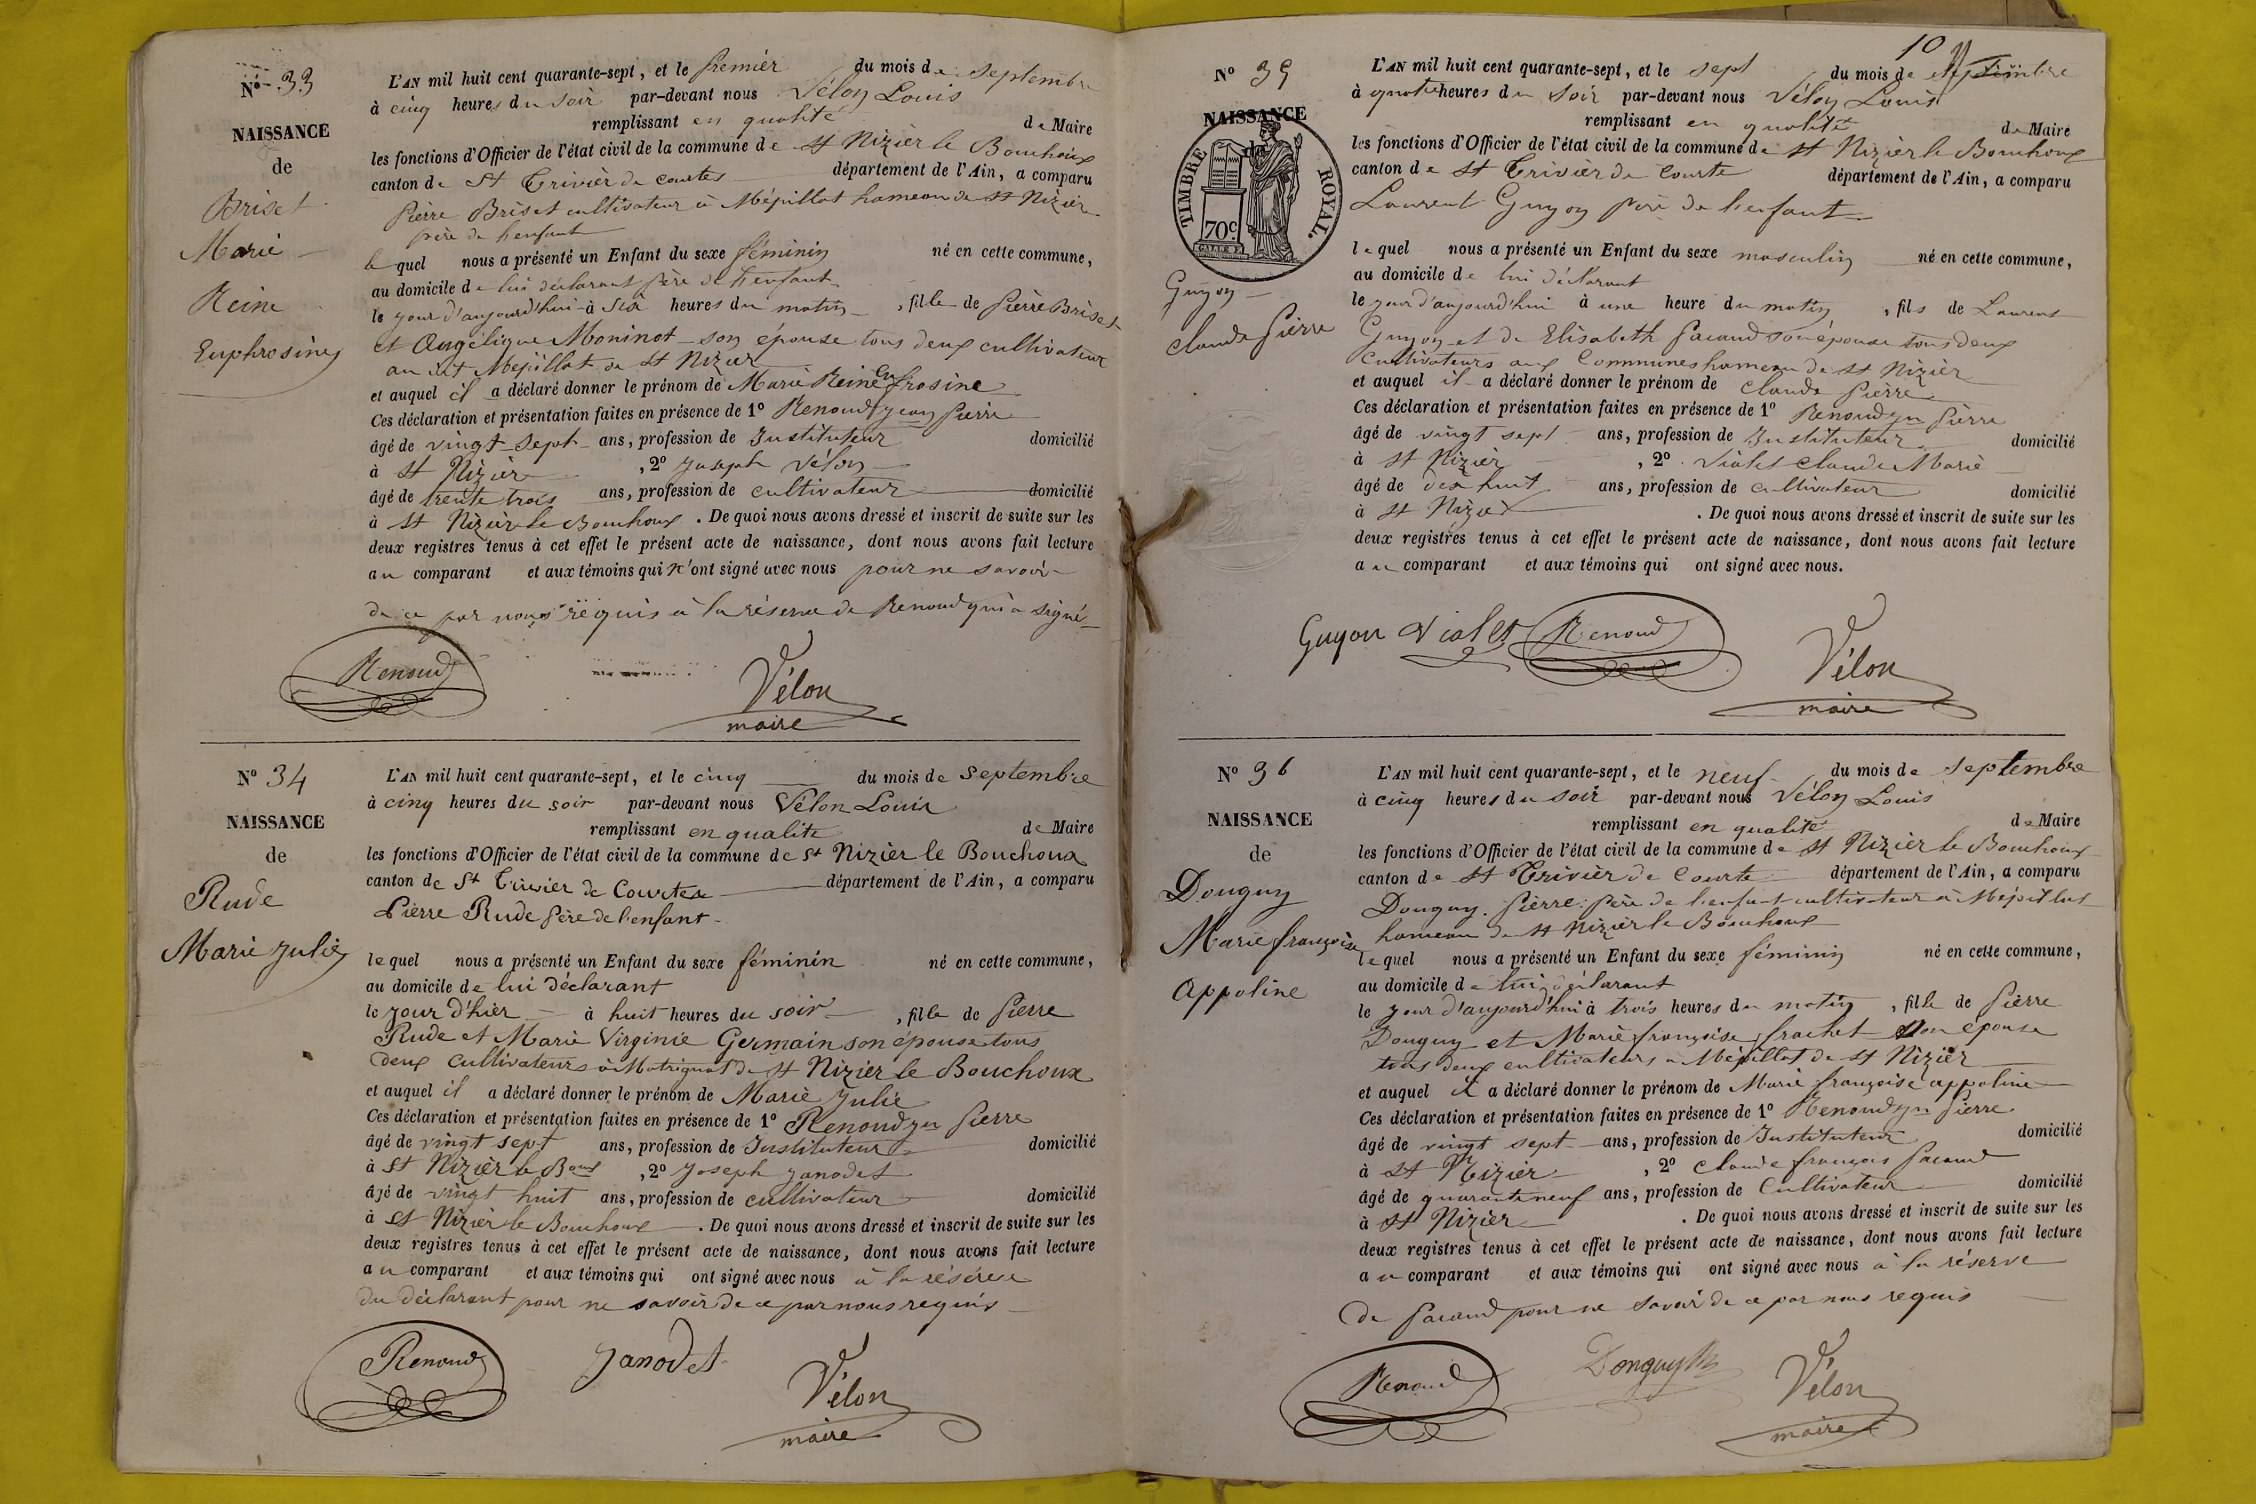 Nº 33
NAISSANCE
de
Briset
Marie
Reine
Euphrosine
L'AN mil huit cent quarante-sept, et le premier du mois de septembre
à cinq heures du soir par-devant nous Vélon Louis
remplissant en qualité de Maire
les fonctions d'Officier de l'état civil de la commune de St Nizier le Bouchoux
canton de St Trivier de Courtes département de l'Ain, a comparu
Pierre Briset cultivateur à Mépillat hameau de St Nizier
père de l'enfant
le quel nous a présenté un Enfant du sexe féminin né en cette commune,
au domicile de lui déclarant père de l'enfant
le jour d'aujourd'hui à six heures du matin, fille de Pierre Briset
et Angélique Moninot son épouse tous deux cultivateur
au dit Mépillat de St Nizier
et auquel il a déclaré donner le prénom de Marie Reine Eufrosine
Ces déclaration et présentation faites en présence de 1º Renoud jean Pierre
âgé de vingt sept ans, profession de Instituteur domicilié
à St Nizier, 2º Joseph Vélon
âgé de trente trois ans, profession de cultivateur domicilié
à St Nizier le Bouchoux. De quoi nous avons dressé et inscrit de suite sur les
deux registres tenus à cet effet le présent acte de naissance, dont nous avons fait lecture
au comparant et aux témoins qui n'ont signé avec nous pour ne savoir
de ce par nous réquis à la réserve de Renoud qui a signé
Renoud
Vélon
maire
Nº 34
NAISSANCE
de
Rude
Marie Julie
L'AN mil huit cent quarante-sept, et le cinq du mois de septembre
à cinq heures du soir par-devant nous Vélon Louis
remplissant en qualité de Maire
les fonctions d'Officier de l'état civil de la commune de St Nizier le Bouchoux
canton de St Trivier de Courtes département de l'Ain, a comparu
Pierre Rude père de l'enfant
le quel nous a présenté un Enfant du sexe féminin né en cette commune,
au domicile de lui déclarant
le jour d'hier à huit heures du soir, fille de Pierre
Rude et Marie Virginie Germain son épouse tous
deux cultivateurs à Matrignat de St Nizier le Bouchoux
et auquel il a déclaré donner le prénom de Marie Julie
Ces déclaration et présentation faites en présence de 1º Renoud jn Pierre
âgé de vingt sept ans, profession de Instituteur domicilié
à St Nizier le Boux, 2º Joseph Janodet
âgé de vingt huit ans, profession de cultivateur domicilié
à St Nizier le Bouchoux. De quoi nous avons dressé et inscrit de suite sur les
deux registres tenus à cet effet le présent acte de naissance, dont nous avons fait lecture
au comparant et aux témoins qui ont signé avec nous à la réserve
du déclarant pour ne savoir de ce par nous requis
Renoud
Janodet
Vélon
maire
10
Nº 35
NAISSANCE
de
TIMBRE ROYAL.
70c
Guyon
Claude Pierre
L'AN mil huit cent quarante-sept, et le sept du mois de septembre
à quatre heures du soir par-devant nous Vélon Louis
remplissant en qualité de Maire
les fonctions d'Officier de l'état civil de la commune de St Nizier le Bouchoux
canton de St Trivier de Courte département de l'Ain, a comparu
Laurent Guyon père de l'enfant
le quel nous a présenté un Enfant du sexe masculin né en cette commune,
au domicile de lui déclarant
le jour d'aujourd'hui à une heure du matin, fils de Laurent
Guyon et de Elisabeth Pacaud son épouse tous deux
cultivateurs aux Communes hameau de St Nizier
et auquel il a déclaré donner le prénom de Claude Pierre
Ces déclaration et présentation faites en présence de 1º Renoud jn Pierre
âgé de vingt sept ans, profession de Instituteur domicilié
à St Nizier, 2º Violet Claude Marie
âgé de dix huit ans, profession de cultivateur domicilié
à St Nizier. De quoi nous avons dressé et inscrit de suite sur les
deux registres tenus à cet effet le présent acte de naissance, dont nous avons fait lecture
au comparant et aux témoins qui ont signé avec nous.
Guyon Violet Renoud
Vélon
maire
Nº 36
NAISSANCE
de
Donguy
Marie françoise
Appoline
L'AN mil huit cent quarante-sept, et le neuf du mois de septembre
à cinq heures du soir par-devant nous Vélon Louis
remplissant en qualité de Maire
les fonctions d'Officier de l'état civil de la commune de St Nizier le Bouchoux
canton de St Trivier de Courte département de l'Ain, a comparu
Donguy Pierre père de l'enfant cultivateur à Mépillat
hameau de St Nizier le Bouchoux
le quel nous a présenté un Enfant du sexe féminin né en cette commune,
au domicile de lui déclarant
le jour d'aujourd'hui à trois heures du matin, fille de Pierre
Donguy et Marie françoise frachet son épouse
tous deux cultivateurs à Mépillat de St Nizier
et auquel il a déclaré donner le prénom de Marie françoise appoline
Ces déclaration et présentation faites en présence de 1º Renoud jn Pierre
âgé de vingt sept ans, profession de Instituteur domicilié
à St Nizier, 2º Claude françois Pacaud
âgé de quarante neuf ans, profession de Cultivateur domicilié
à St Nizier. De quoi nous avons dressé et inscrit de suite sur les
deux registres tenus à cet effet le présent acte de naissance, dont nous avons fait lecture
au comparant et aux témoins qui ont signé avec nous à la réserve
de Pacaud pour ne savoir de ce par nous requis
Renoud
Donguy
Vélon
maire